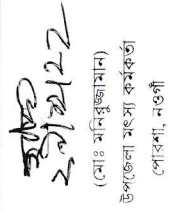 (মোঃ মনিরুজ্জামান)
উপজেলা মৎস্য কর্মকর্তা
পোরশা, নওগাঁ